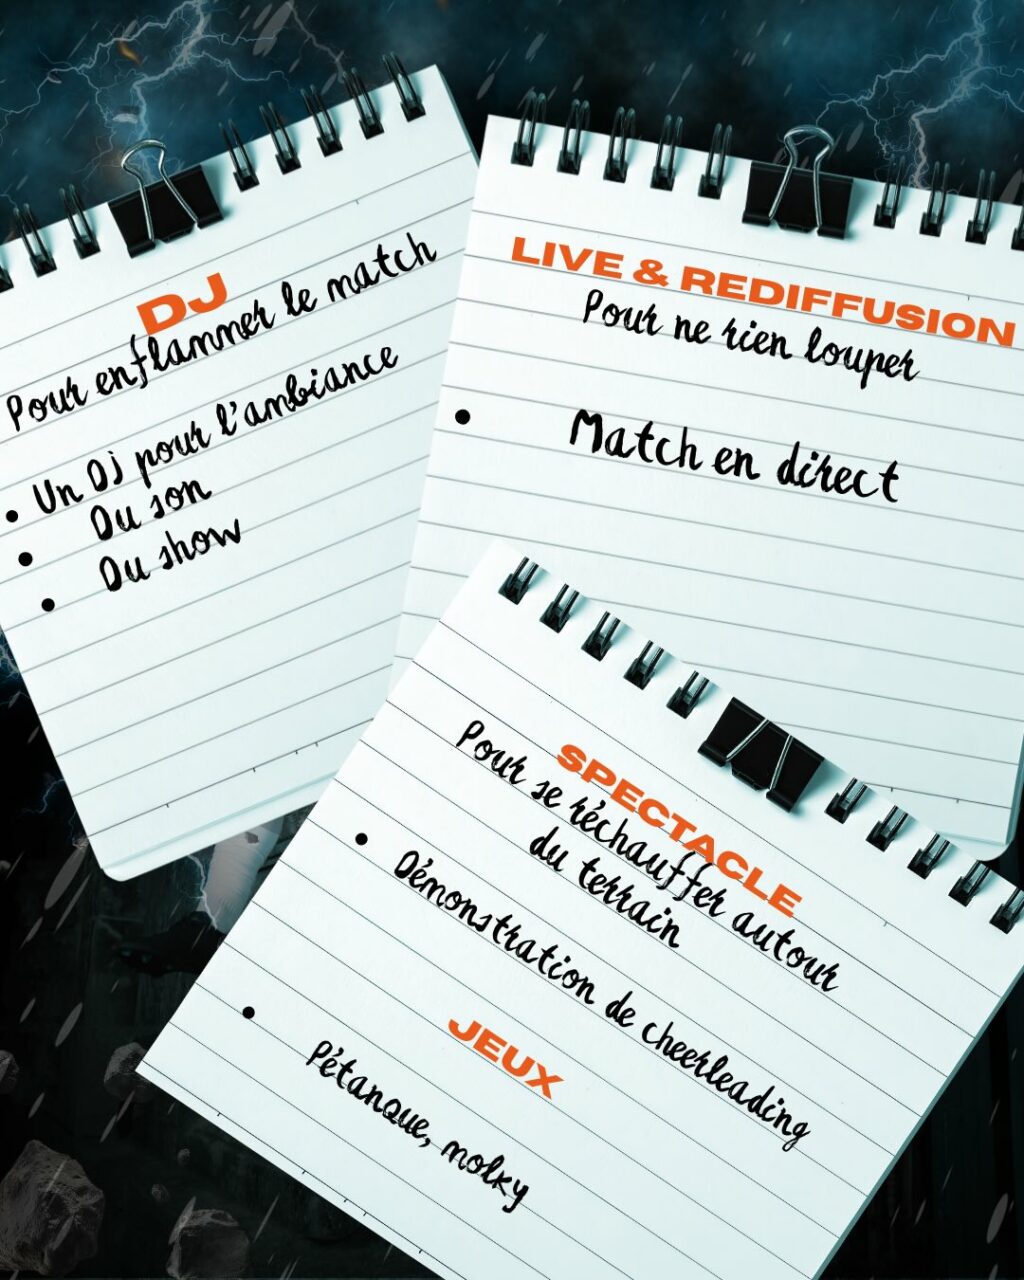 DJ
Pour enflammer le match
• Un Dj pour l'ambiance
• Du son
• Du show
LIVE & REDIFFUSION
Pour ne rien louper
• Match en direct
SPECTACLE
Pour se réchauffer autour
du terrain
• Démonstration de cheerleading
JEUX
• Pétanque, molky